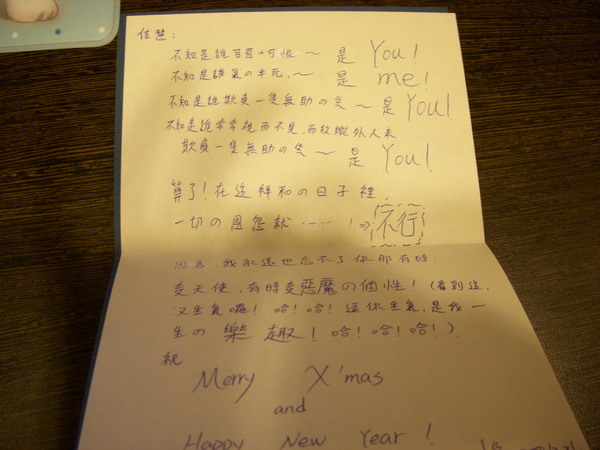 佳慧:
不知是誰百惡+可恨～是 You!
不知是誰氣の半死.～是 me!
不知是誰欺負一隻無助の羊～是 You!
不知是誰常常視而不見,而放縱外人來
欺負一隻無助の羊～是 You!
算了!在這祥和の日子裡
一切の恩怨就……!⇒不行
因為,我永遠也忘不了你那有時
變天使,有時變惡魔の個性!(看到這,
又生氣囉!哈!哈!逗你生氣,是我一
生の樂趣!哈!哈!哈!).
祝
Merry X'mas
and
Happy New Year!